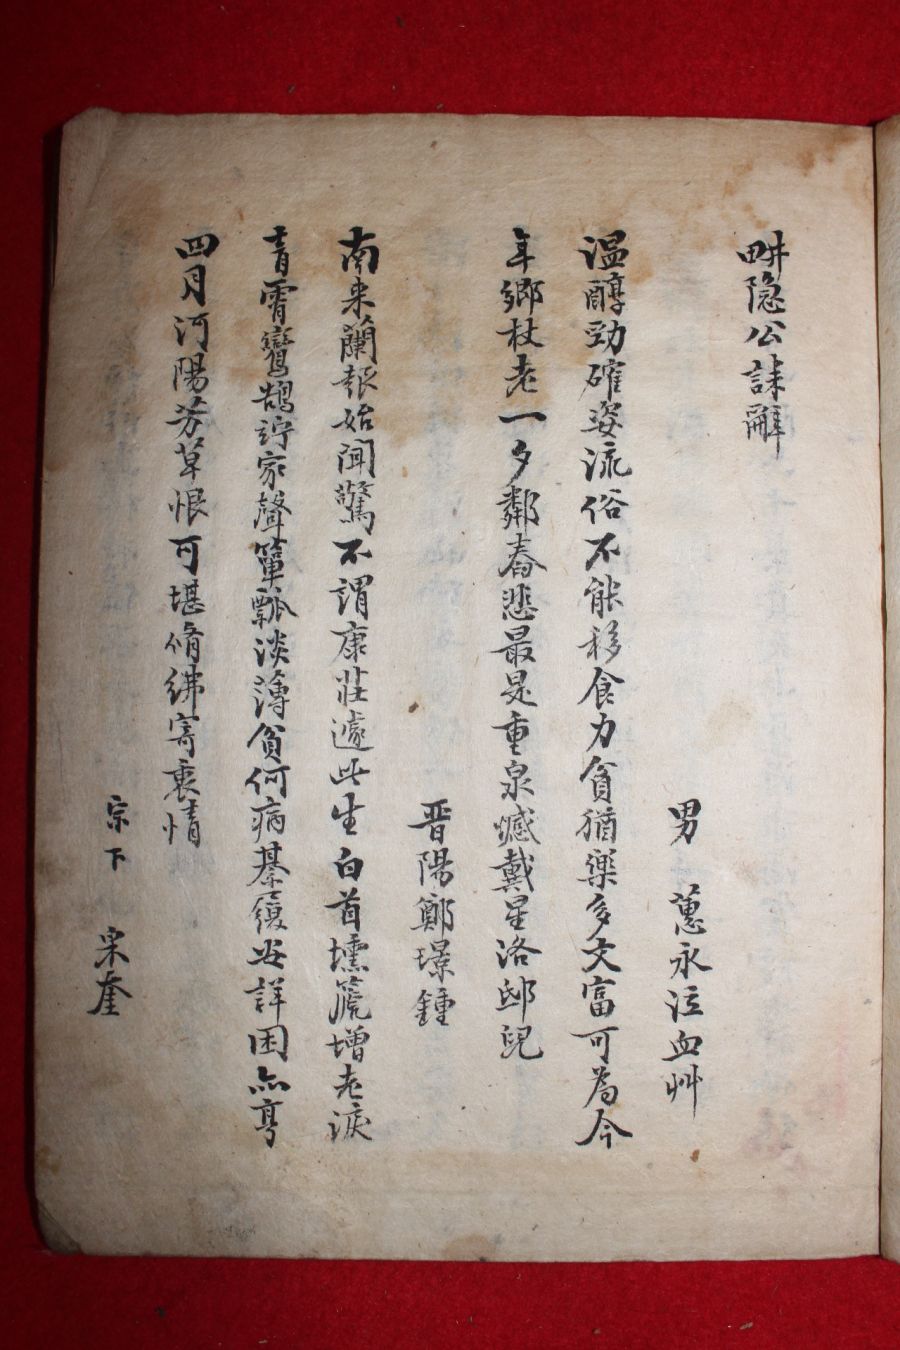 畊隐公誄辭
男 蕙永泣血艸
温醇勁確姿流俗不能移食力貧猶樂多文富可為今
年鄉杖老一夕鄰舂悲最是重泉憾戴星洛邸兒
晋陽鄭璟鍾
南来蘭報始聞驚不謂康莊遽此生白首壎篪增老淚
青霄鸞鵠詝家聲簞瓢淡薄貧何病綦履安詳困亦亨
四月河陽芳草恨可堪脩紼寄衷情
宗下 奎